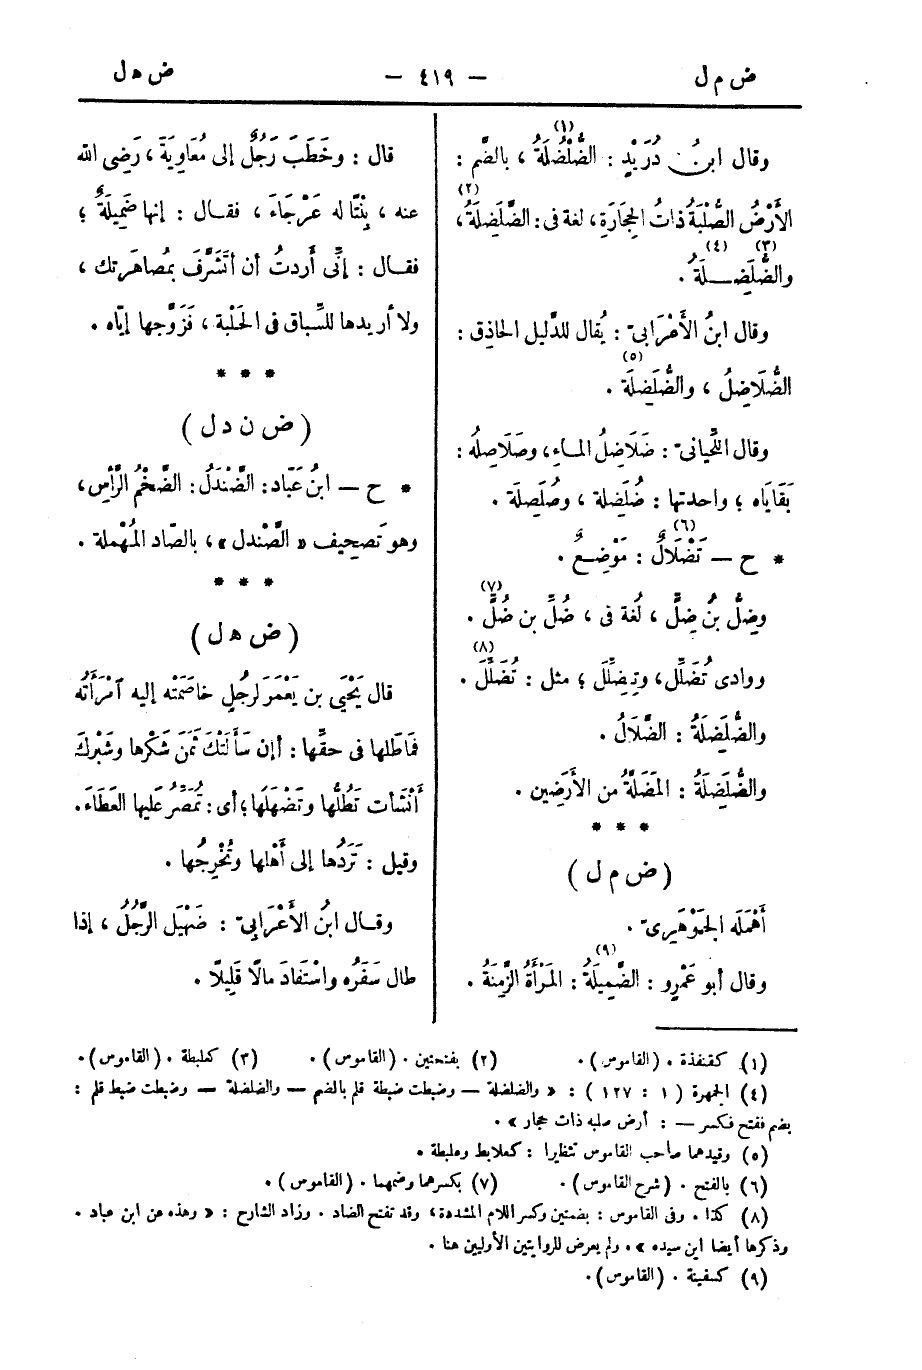 ض م ل
— ٤١٩ —
ض ه ل
وقال ابنُ دُرَيْدٍ : الضُّلْضُلَةُ (١) ، بالضَّم :
الأَرْضُ الصُّلْبَةُ ذاتُ الحِجَارَةِ ، لغة فى : الضَّلَضِلَةُ (٢) ،
والضُّلَضِلَةُ (٣) (٤) .
وقال ابنُ الأَعْرَابىّ : يُقال للدَّليل الحاذِق :
الضُّلَاضِلُ ، والضُّلَضِلَة (٥) .
وقال اللِّحيانىّ : ضَلَاضِلُ الماءِ ، وصَلَاصِلُه :
بَقَايَاه ؛ واحدتها : ضُلَضِلة ، وصُلَصِلَة .
* ح — تَضْلَالٌ (٦) : مَوْضِعٌ .
وضِلُّ بنُ ضِلٍّ ، لُغة فى ، ضُلّ بن ضُلٍّ (٧) .
ووادى تُضَلِّل ، وتِضِلِّل ؛ مثل : تُضَلِّلَ (٨) .
والضُّلَضِلَةُ : الضَّلَالُ .
والضُّلَضِلَةُ : المَضَلَّةُ من الأرَضِين .
* * *
( ض م ل )
أَهْمَلَه الجَوْهَرِىّ .
وقال أبو عَمْرٍو : الضَّمِيلَةُ (٩) : المَرْأَةُ الزَّمِنَةُ .
قال : وخَطَبَ رَجُلٌ إلى مُعَاوِيَةَ ، رَضِى الله
عنه ، بِنْتًا له عَرْجَاءَ ، فقال : إنها ضَمِيلَةٌ ؛
فقال : إنِّى أَردتُ أن أَتَشَرَّفَ بمُصاهَرتِك ،
ولا أريدها للسِّباق فى الحَلْبة ، فَزَوَّجها إيّاه .
* * *
( ض ن د ل )
* ح — ابنُ عَبّاد : الضَّنْدَلُ : الضَّخْمُ الرَّأْسِ ،
وهو تَصحِيف « الصَّنْدل » ، بالصّاد المُهْملة .
* * *
( ض ه ل )
قال يَحْيَى بن يَعْمَرَ لرجُلٍ خاصَمتْه إليه امْرَأَتُه
فمَاطَلها فى حَقِّها : أإن سَأَلَتْكَ ثَمَنَ شَكْرِها وشَبْرِكَ
أَنْشَأتَ تَطُلُّها وتَضْهَلُها ؛ أى : تُمَصِّرُ عليها العَطَاءَ .
وقيل : تَرَدُّها إلى أَهْلها وتُخْرِجُها .
وقال ابنُ الأَعْرَابىّ : ضَهَيَلَ الرَّجُلُ ، إذا
طال سَفَرُه واسْتَفادَ مالًا قَلِيلًا .
(١) كقنفذة . (القاموس) .
(٢) بفتحتين . (القاموس) .
(٣) كعلبطة . (القاموس) .
(٤) الجمهرة ( ١ : ١٢٧ ) : « والضلضلة — وضبطت ضبطة قلم بالضم — والضلضلة — وضبطت ضبط قلم :
بضم ففتح فكسر — : أرض صلبه ذات حجار » .
(٥) وقيدهما صاحب القاموس تنظيرا : كعلابط وعلبطة .
(٦) بالفتح . (شرح القاموس) .
(٧) بكسرهما وضمهما . (القاموس) .
(٨) كذا . وفى القاموس : بضمتين وكسر اللام المشددة ، وقد تفتح الضاد . وزاد الشارح : « وهذه عن ابن عباد .
وذكرها أيضا ابن سيده » . ولم يعرض للروايتين الأوليين هنا .
(٩) كسفينة . (القاموس) .